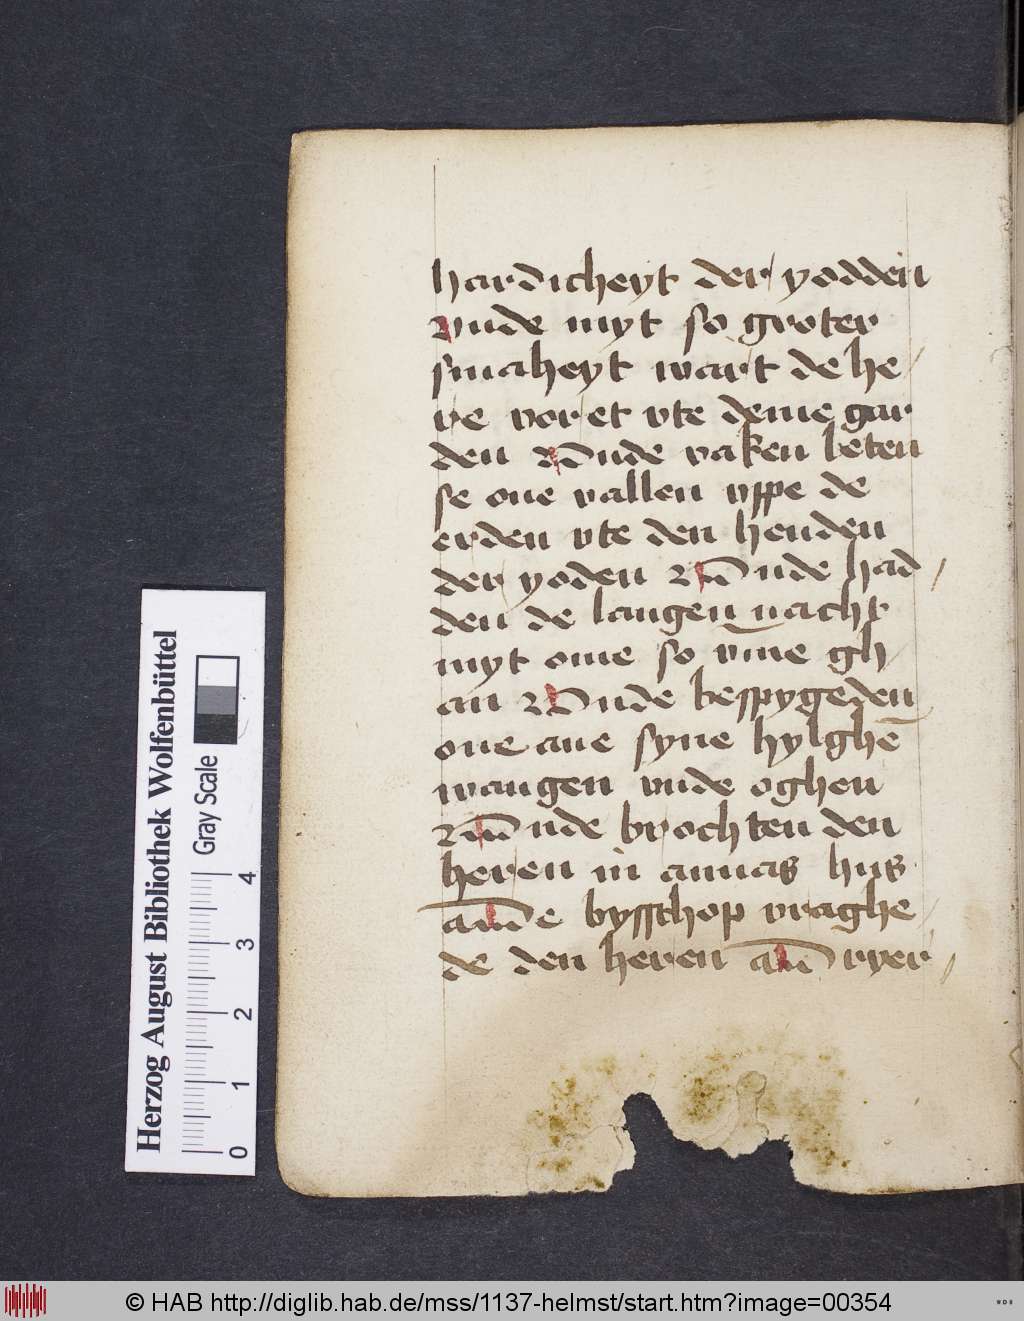 hardicheyt der yodden
vnde myt so groter
smaheyt wart de he
re voret vte deme gar
den vnde vaken leten
se one vallen vppe de
erden vte den henden
der yoden vnde had
den de langen nacht
myt ome so vm̄e gh
an vnde bespygeden
one ane syne hylghē
wangen vnde oghen
vnde brochten den
heren in annas hus
de bysschop vraghe
de den heren van ryer
Herzog August Bibliothek Wolfenbüttel
Gray Scale
0 1 2 3 4
© HAB http://diglib.hab.de/mss/1137-helmst/start.htm?image=00354